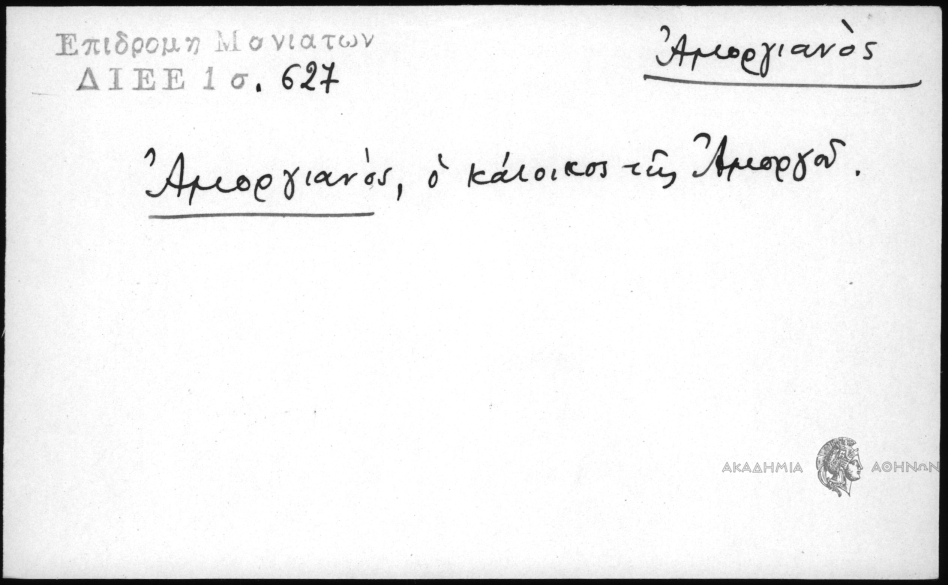 Επιδρομη Μανιατων
ΔΙΕΕ 1 σ. 627
Ἀμοργιανὸς
Ἀμοργιανὸς, ὁ κάτοικος τῆς Ἀμοργοῦ.
ΑΚΑΔΗΜΙΑ ΑΘΗΝΩΝ